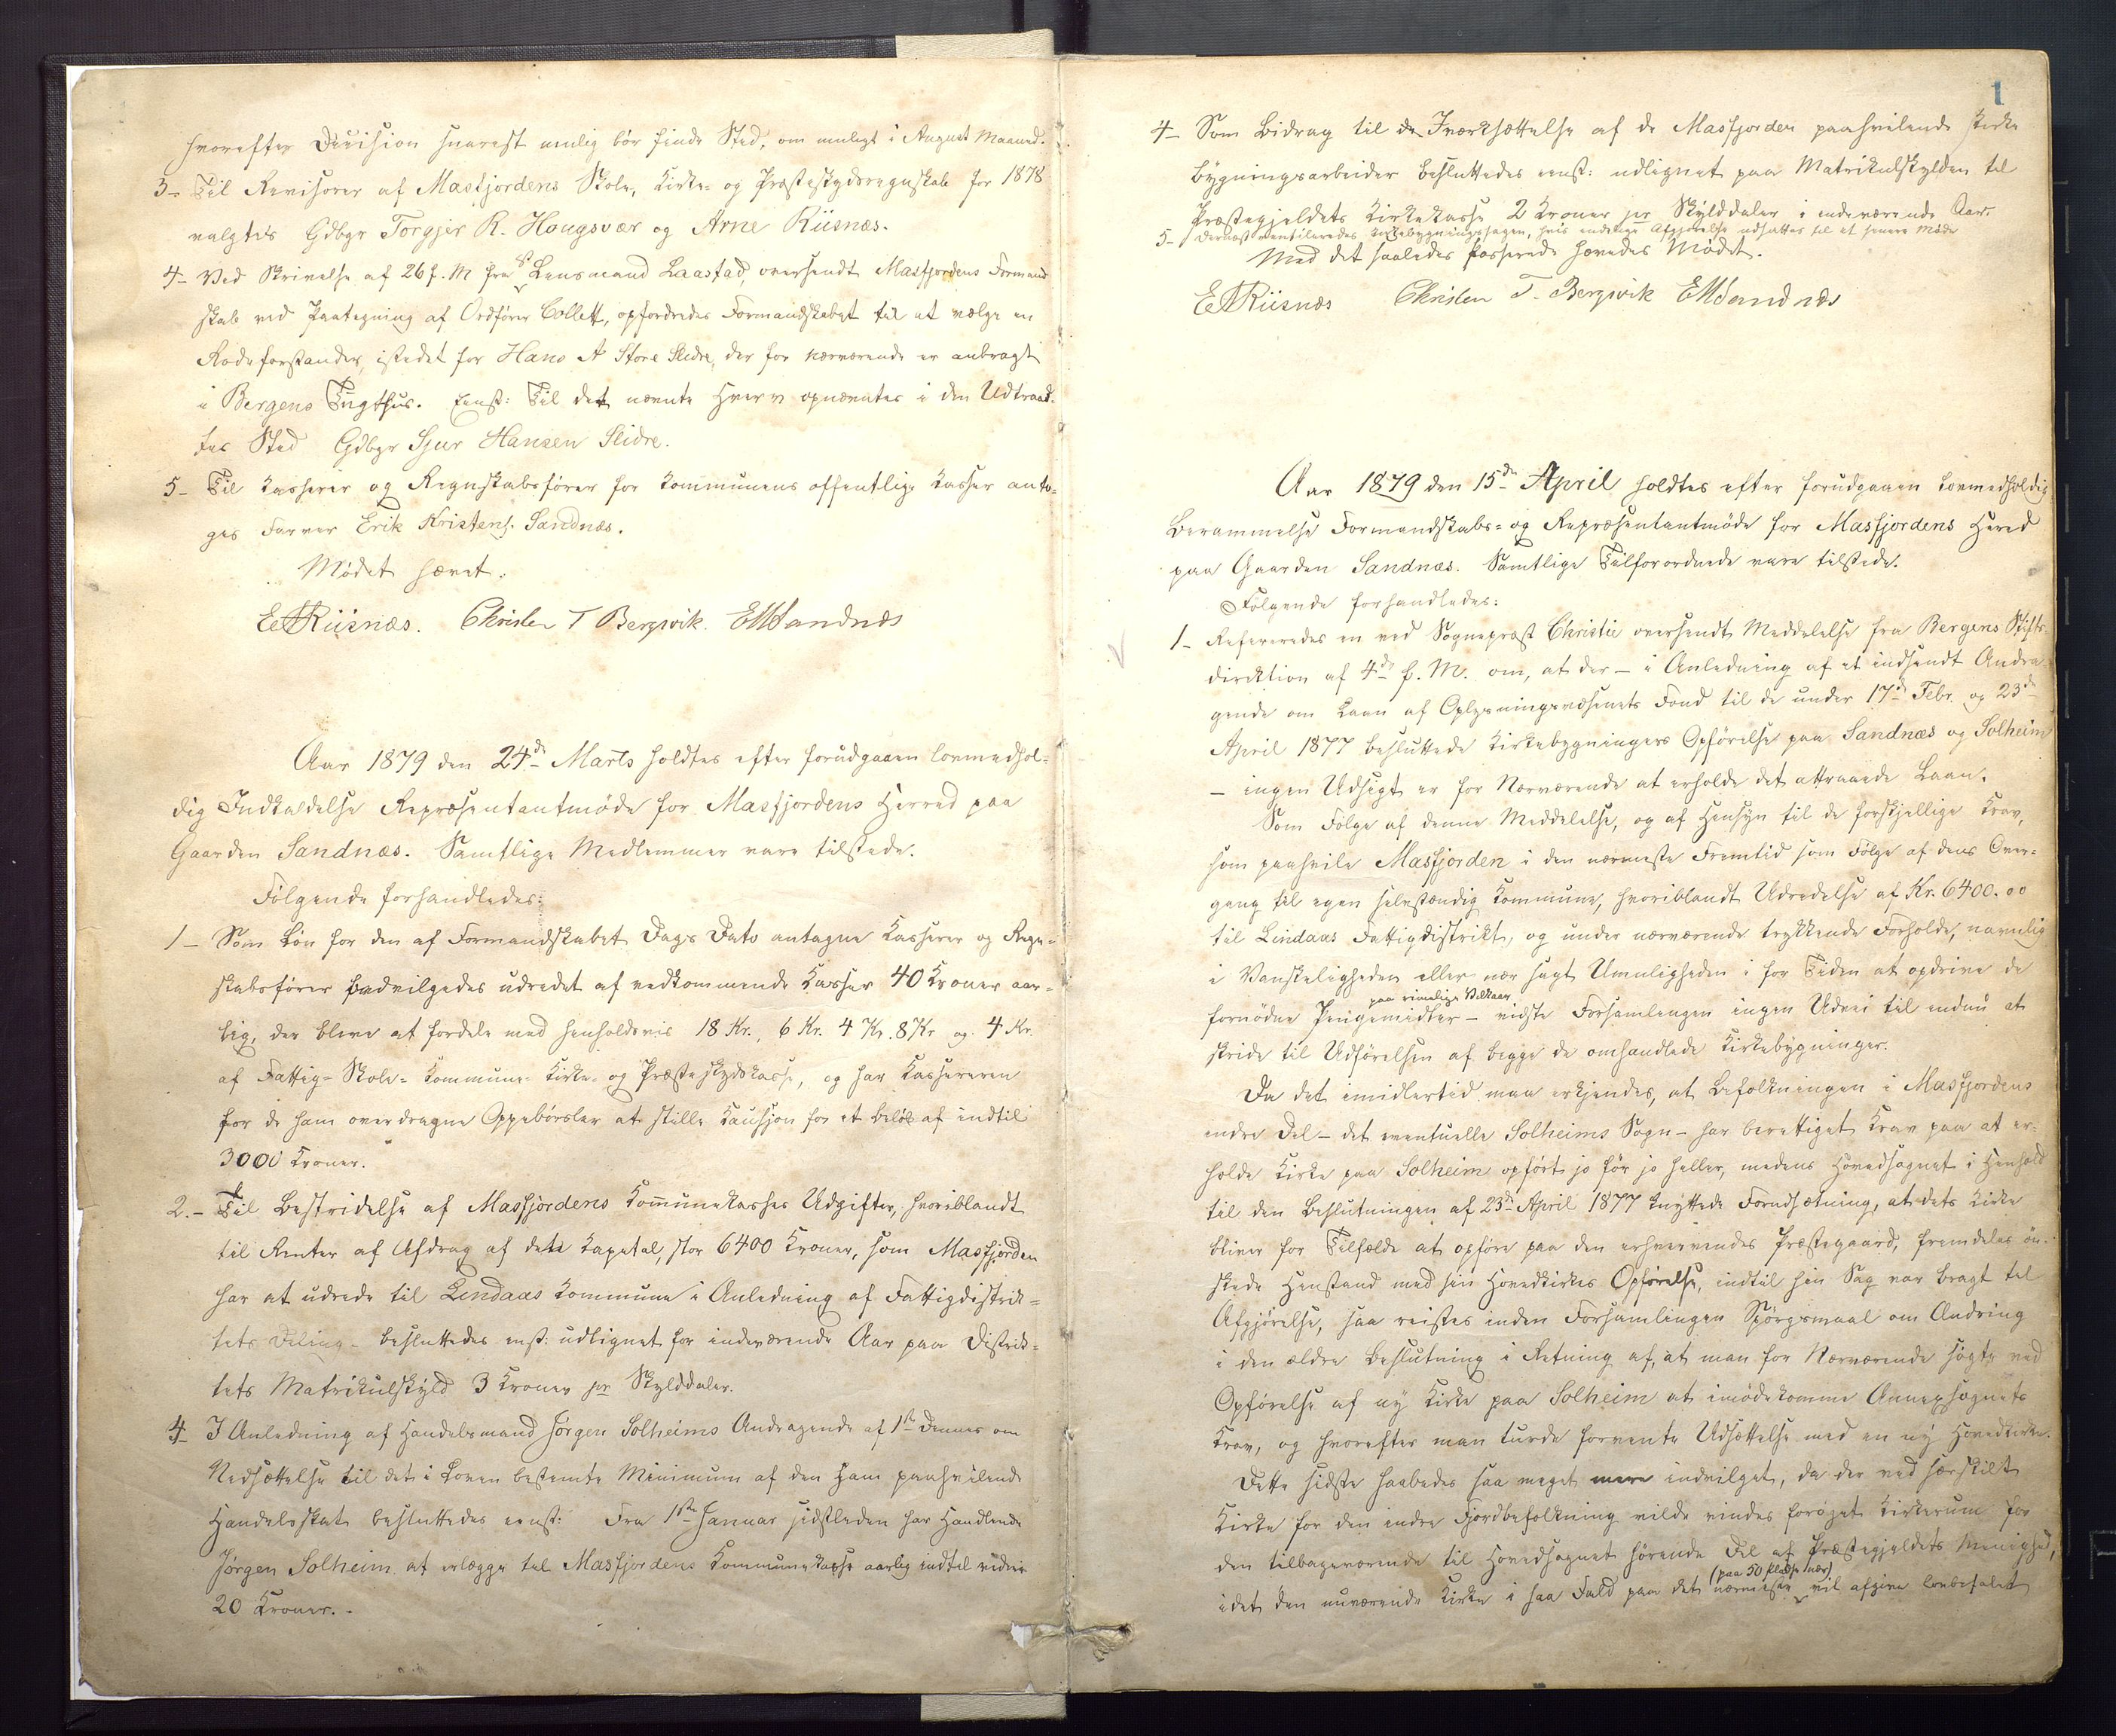 hvorefter Decision snarest mulig bør finde Sted, om muligt i August Maaned.
3- Til Revisorer af Masfjordens Skole, Kirke- og Præsteskydsregnskab for 1878
valgtes Gdbgr Torgjer R. Hougsvær og Arne Riisnæs.
4- Ved Skrivelse af 26 f. M fra Lensmand Laastad, oversendt Masfjordens Formand
skab ved Paategning af Ordfører Collett, opfordredes Formandskabet til at vælge en
Rodeforstander, istedet for Hans A Store Slidre, der for nærværende er anbragt
i Bergens Tugthus. Eenst: Til det nævnte Hverv opnævntes i den Udtraad-
tes Sted Gdbgr Sjur Hansen Slidre.
5- Til Kasserer og Regnskabsfører for Kommunens offentlige Kasser anto-
ges Farver Erik Kristens. Sandnæs.
Mødet hævet.
E A Riisnæs. Christen T Bergsvik. E K Sandnæs
Aar 1879 den 24de Marts holdtes efter forudgaaen lovmedhol-
dig Indkaldelse Repræsentantmøde for Masfjordens Herred paa
Gaarden Sandnæs. Samtlige Medlemmer vare tilstede.
Følgende forhandledes:
1- Som Løn for den af Formandskabet Dags Dato antagne Kasserer og Regn-
skabsfører bedvilgedes udredet af vedkommende Kasser 40 Kroner aar-
lig, der blive at fordele med henholdsvis 18 Kr., 6 Kr. 4 Kr. 8 Kr og 4 Kr.
af Fattig- Skole- Kommune- Kirke- og Præsteskydskasse, og har Kassereren
for de ham overdragne Oppebørsler at stille Kausjon for et Beløb af indtil
3000 Kroner.
2.- Til Bestridelse af Masfjordens Kommunekasses Udgifter, hvoriblandt
til Renter af Afdrag af dets Kapital, stor 6400 Kroner, som Masfjorden
har at udrede til Lindaas Kommune i Anledning af Fattigdistrik-
tets Deling - besluttedes enst: udlignet for indeværende Aar paa Distrik-
tets Matrikulskyld 3 Kroner pr Skylddaler.
4- I Anledning af Handelsmand Jørgen Solheims Andragende af 1ste Dennes om
Nedsættelse til det i Loven bestemte Minimum af den Ham paahvilende
Handelsskat besluttedes eenst: Fra 1ste Januar sidstleden har Handlende
Jørgen Solheim at erlægge til Masfjordens Kommunekasse aarlig indtil videre
20 Kroner.-
1
4- Som Bidrag til Iværksættelse af de Masfjorden paahvilende Kirke
bygningsarbeider besluttedes eenst: udlignet paa Matrikulskylden til
Præstegjeldets Kirkekasse 2 Kroner pr Skylddaler i indeværende Aar.
5- Dernæst ventileredes Kirkebygningssagen, hvis endelige Afgjørelse udsattes til et senere Møde
Med det saaledes Passerede hævedes Mødet.
E A Riisnæs Christen T. Bergsvik E K Sandnæs
Aar 1879 den 15de April holdtes efter forudgaaen lovmedholdig
Berammelse Formandskabs- og Repræsentantmøde for Masfjordens Hered
paa Gaarden Sandnæs. Samtlige Tilforordnede vare tilstede.
Følgende forhandledes:
1- Refereredes en ved Sognepræst Christie oversendt Meddelelse fra Bergens Stifts-
direktion af 4de f. M. om, at der - i Anledning af et indsendt Andra-
gende om Laan af Oplysningsvæsenets Fond til de under 17de Febr. og 23de
April 1877 besluttede Kirkebygningers Opførelse paa Sandnæs og Solheim
- ingen Udsigt er for Nærværende at erholde det attraaede Laan.
Som Følge af denne Meddelelse, og af Hensyn til de forskjellige Krav,
som paahvile Masfjorden i den nærmeste Fremtid som Følge af dens Over-
gang til egen selvstændig Kommune, hvoriblandt Udredelse af Kr. 6400.00
til Lindaas Fattigdistrikt, og under nærværende trykkende Forholde, navnlig
i Vanskeligheden eller nær sagt Umuligheden i for Tiden at opdrive de
paa rimelige Vilkaar
fornødne Pengemidler - vidste Forsamlingen ingen Udvei til endnu at
skride til Udførelsen af begge de omhandlede Kirkebygninger.
Da det imidlertid maa erkjendes, at Befolkningen i Masfjordens
indre Del - det eventuelle Solheims Sogn - har berettiget Krav paa at er-
holde Kirke paa Solheim opført jo før jo heller, medens Hovedsognet i Henhold
til den Beslutningen af 23de April 1877 knyttede Forudsætning, at dets Kirke
bliver for Tilfælde at opføre paa den erhvervendes Præstegaard, fremdeles øn-
skede Henstand med sin Hovedkirkes Opførelse, indtil hin Sag var bragt til
Afgjørelse, saa reistes inden Forsamlingen Spørgsmaal om Ændring
i den ældre Beslutning i Retning af, at man for Nærværende søgte ved
Opførelse af ny Kirke paa Solheim at imødekomme Annexsognets
Krav, og hvorefter man turde forvente Udsættelse med en ny Hovedkirke.
Dette sidste haabedes saa meget mere indvilget, da der ved særskilt
Kirke for den indre Fjordbefolkning vilde vindes forøget Kirkerum for
den tilbageværende til Hovedsognet hørende Del af Præstegjeldets Menighed,
(paa 50 Kladse nær)
idet den nuværende Kirke i saa Fald paa det nærmeste vil afgive lovbefalet